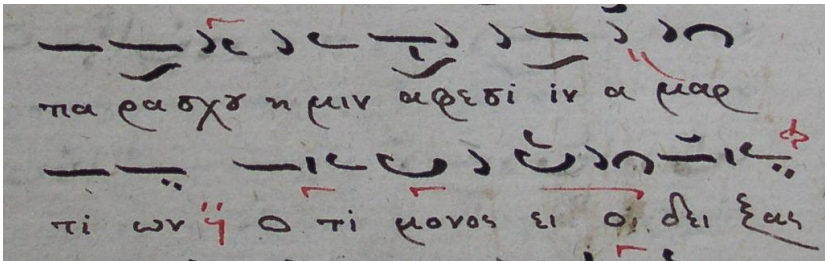 πα ρασχου η μιν αφεσι ιν α μαρ
τι ων η Ο τι μονος ει ο δει ξας